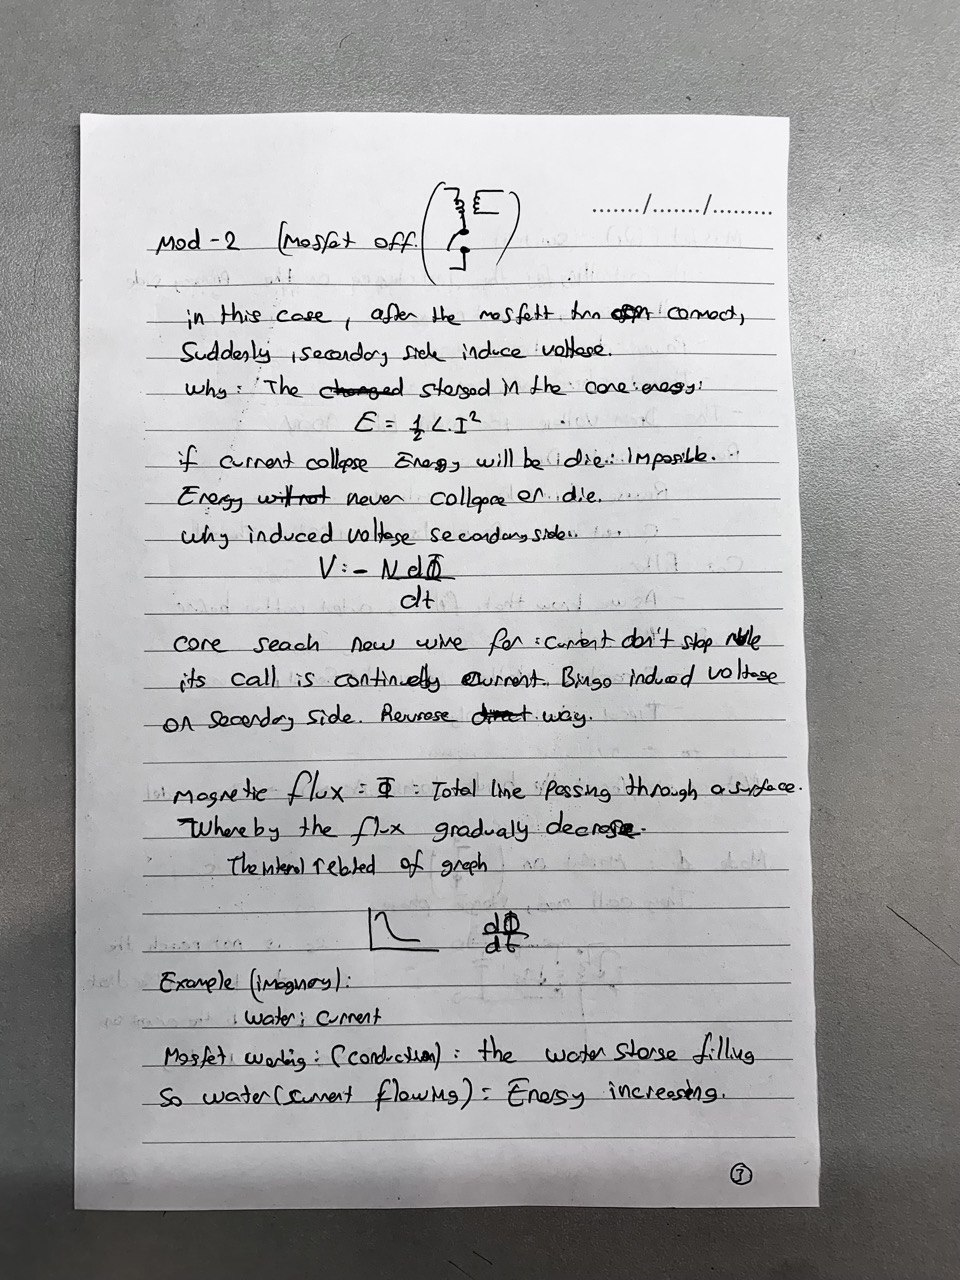 ......./......./.........
Mod-2 (Mosfet off.
in this case, after the mosfett trn connect,
Suddenly, secondary side induce voltage.
why: The storged in the core: energy:
E = 1/2 L.I²
if current collepse Energy will be die: Imposible.
Energy never collapse or die.
why induced voltage secondary side:
V:= - N dΦ
dt
core seach new wire for: current don't stop
its call is continuelly current. Bingo induced voltage
on secondary side. Reverse way.
Magnetic flux = Φ = Total line passing through a surface.
Whereby the flux gradualy decrase.
The related of graph
dΦ
dt
Example (imagnary):
water: current
Mosfet working: (conduction): the water storge filling
So water (current flowing) = Energy increasing.
3